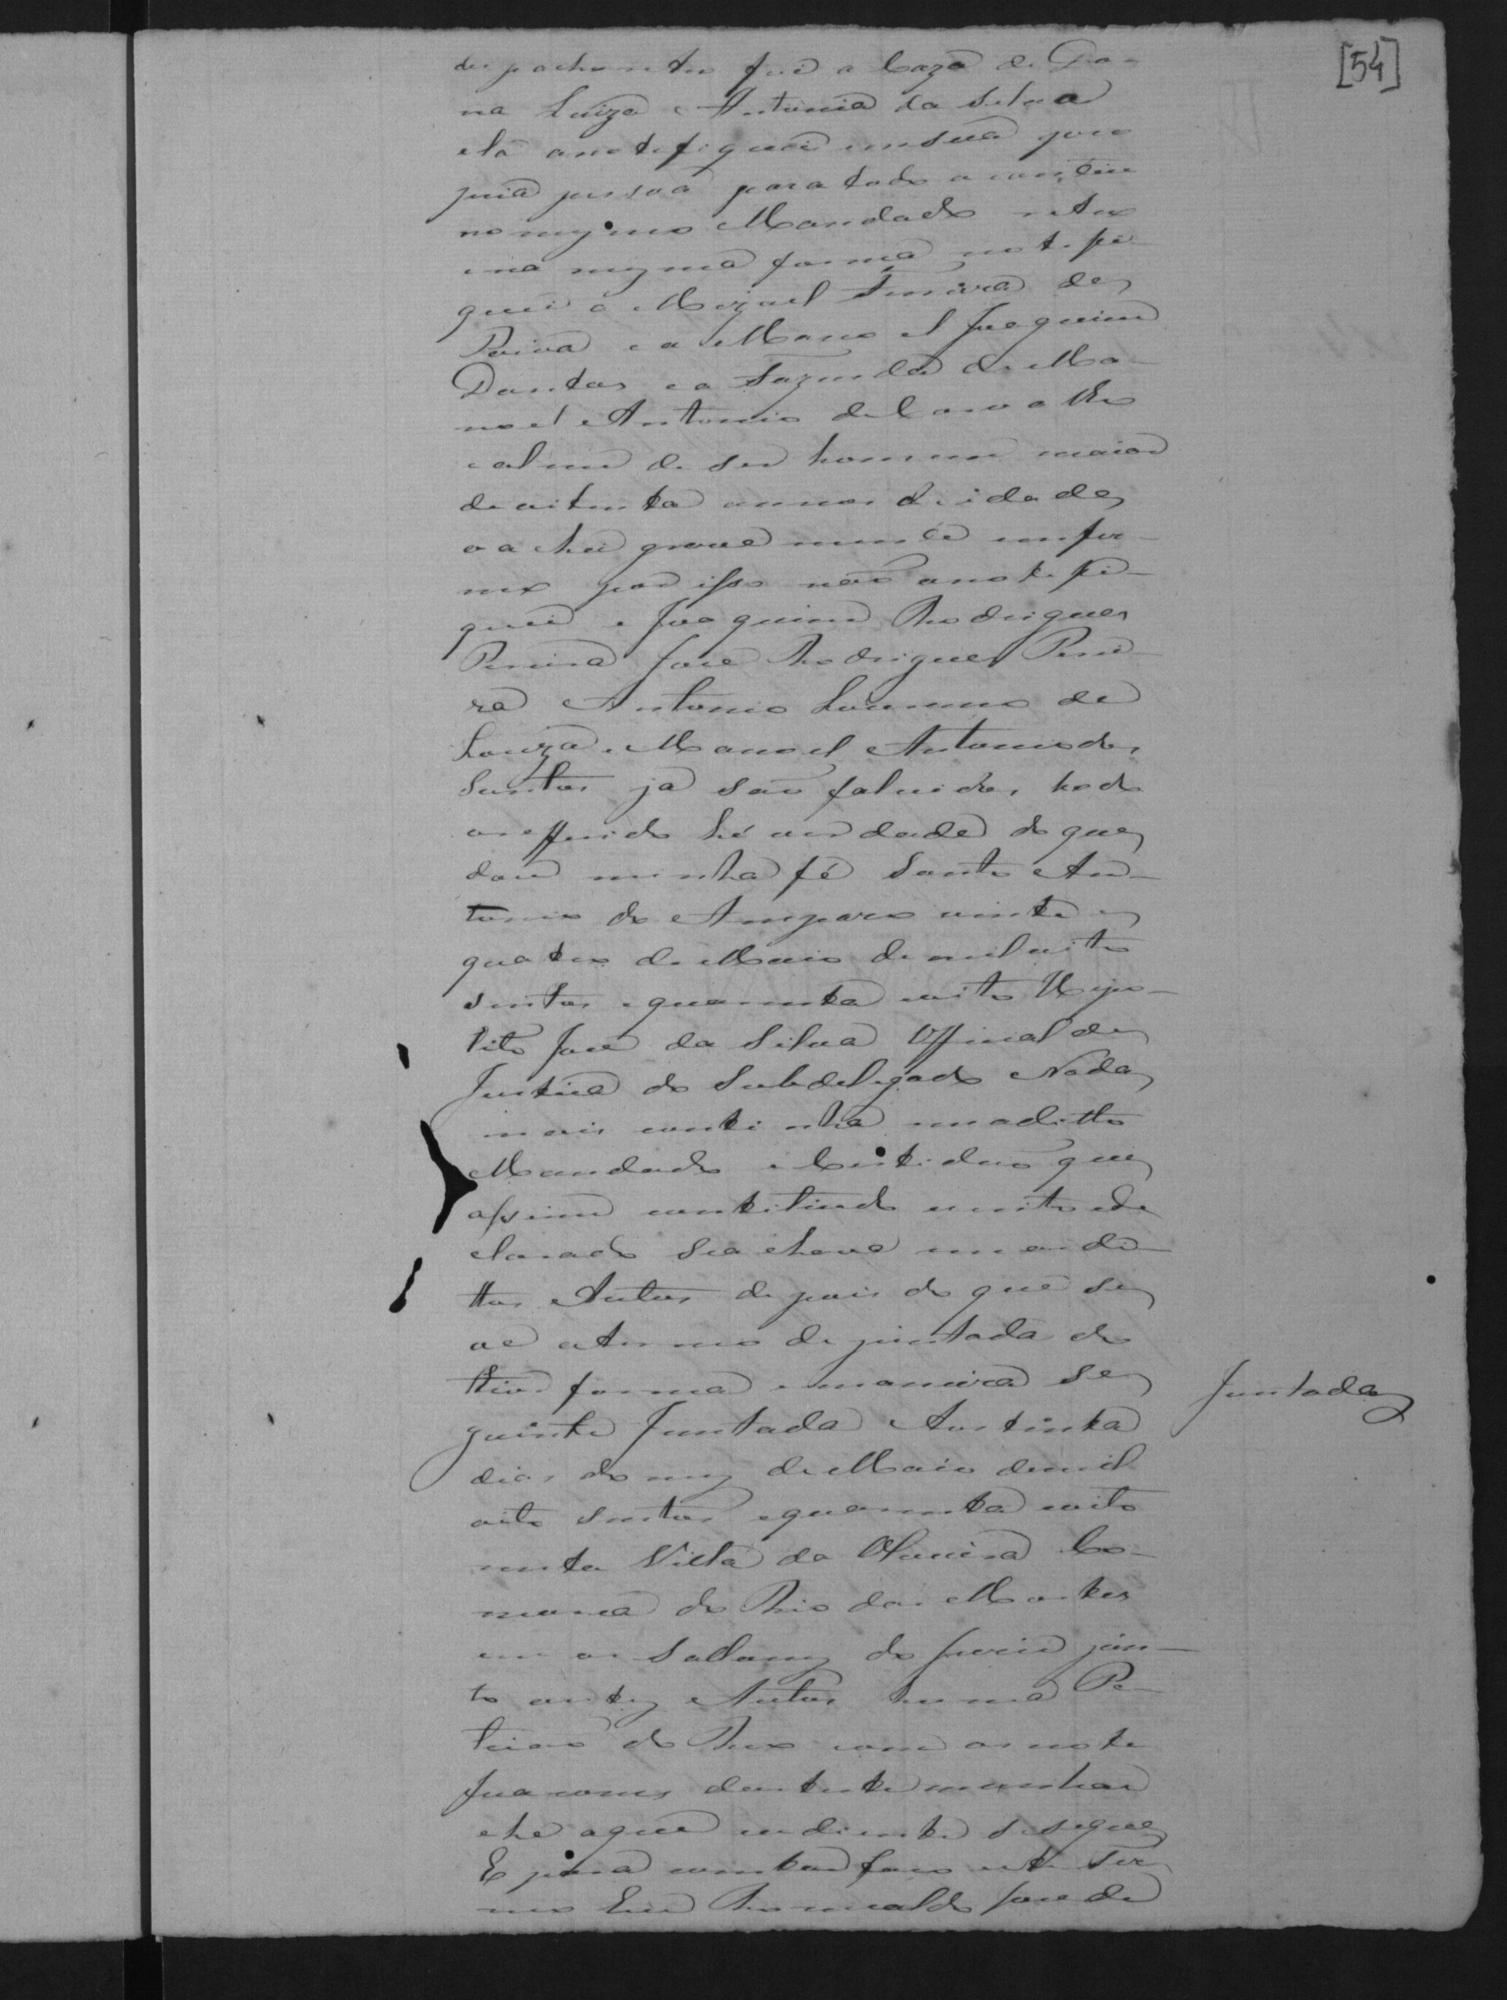 [54]
despacho retro fui a Caza de Do-
na Luiza Antonia da Silva
e la a notefiquei em sua pro
pria pessoa para todo o contheu
no mesmo Mandado retro
e na mesma forma notefi-
quei a Mizael Ferreira de
Paiva e a Mano el Joaquim
Dantas e a Fazenda de Ma-
noel Antonio de Carvalho
e alem de ser homem maior
de oitenta annos de idade
o achei gravemente emfer-
mo por isso não a notefi-
quei e Joaquim Rodrigues
Pereira Jose Rodrigues Perei-
ra Antonio Lourenço de
Souza e Manoel Antonio dos
Santos já são falecidos, todo
o reffirido hé verdade do que
dou minha fé Santo An-
tonio do Amparo vinte e
quatro de Maio de mil oito
sentos e quarenta e oito Hypo-
lito Jose da Silva Official de
Justiça do Subdelegado Nada
mais conti nha em o ditto
Mandado e Certidão que
assim contheúdo escrito e de
clarado se a chava em os di-
ttos Autos depois do que se
ve o termo de juntada do
thior forma e maneira se
guinte Juntada Aos trinta
dias do mez de Maio de mil
oito sentos e quarenta e oito
nesta Villa da Oliveira Co-
marca do Rio das Mortes
em os Sallarios do Juizo jun-
to a estes Autos huma Pe-
tição do Reo com as note
ficaçoens das testemunhas
e he a que ao diante se segue
E para constar faço este Ter
mo Eu Romualdo Jose de
Juntada